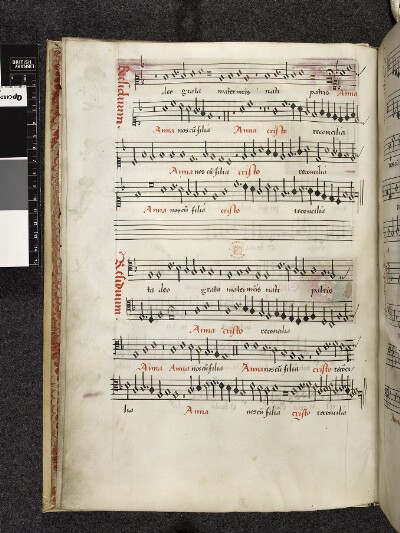 deo grata mater mōis nati patris Anna
Residuum.
Anna nos cū filia Anna cristo reconcilia
Anna nos cū filia cristo reconcilia
Anna nos cū filia cristo reconcilia
Residuum
ta deo grata mater mōis nati patris
Anna cristo reconcilia
Anna Anna nos cū filia Anna nos cū filia cristo
lia Anna nos cū filia cristo reconcilia
BRITISH